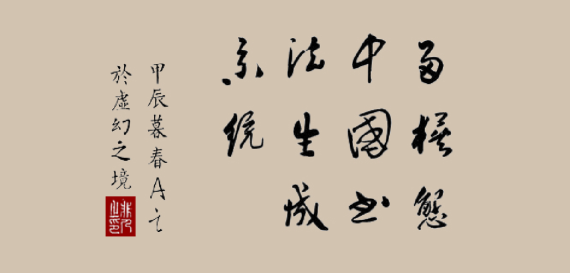 多模態
中國書
法生成
系統
甲辰暮春A之
於虛幻之境